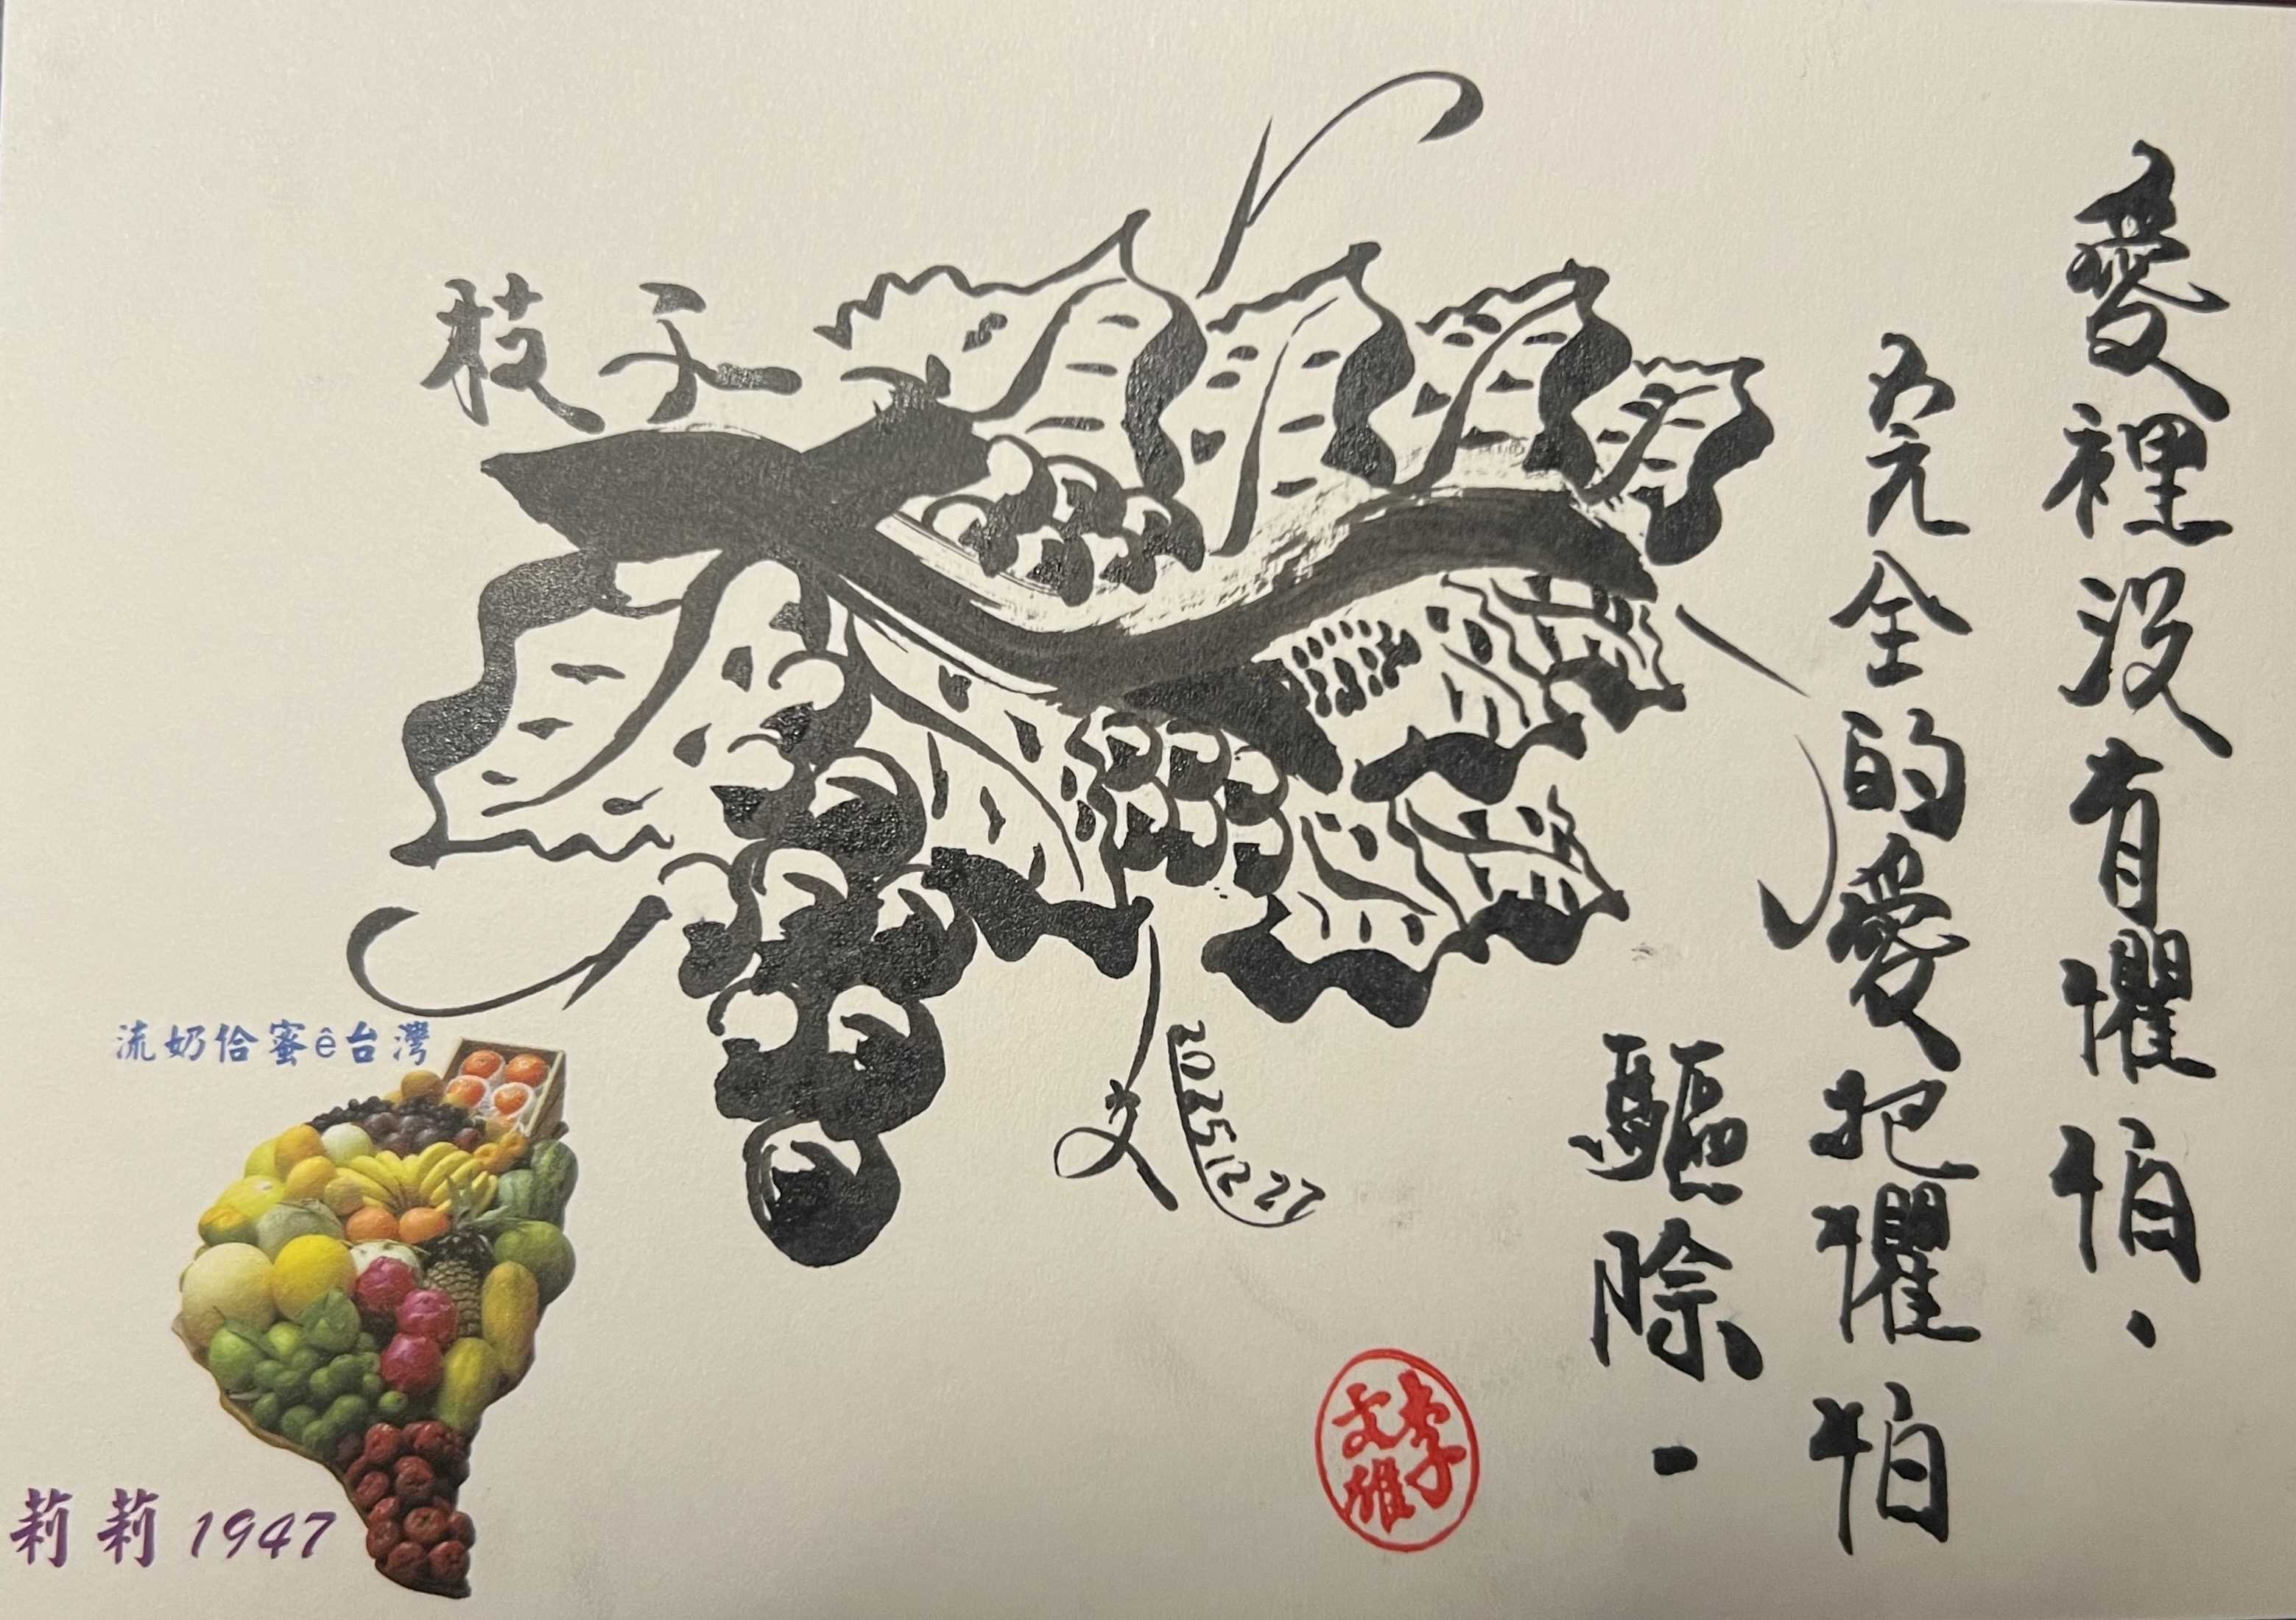 愛裡沒有懼怕．
完全的愛把懼怕
驅除．
枝子
文
2025 12 27
李文雄
流奶佮蜜ê台灣
莉莉1947